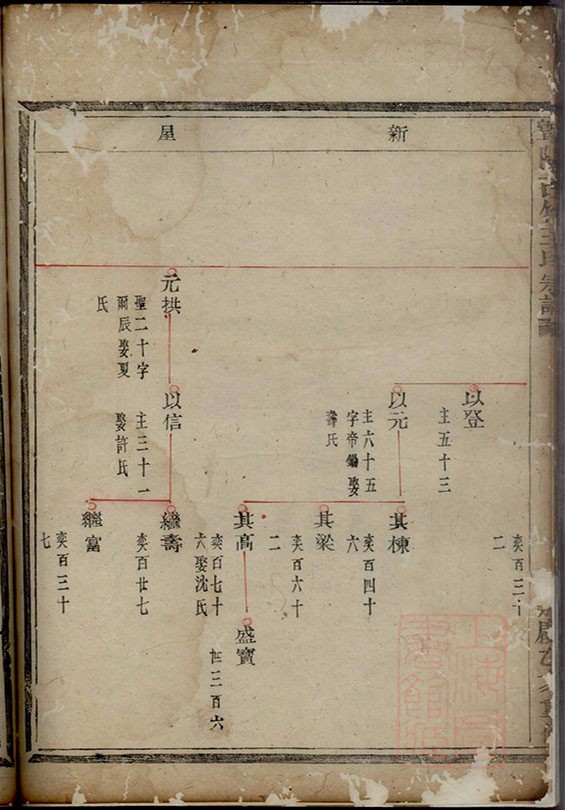 新屋
以登
主五十三
奕百三十
二
以元
主六十五
字帝錫娶
壽氏
其棟
奕百四十
六
其梁
奕百六十
二
其高
奕百七十
六娶沈氏
盛寶
世三百六
元拱
聖二十字
爾辰娶夏
氏
以信
主三十一
娶許氏
繼壽
奕百廿七
繼富
奕百三十
七